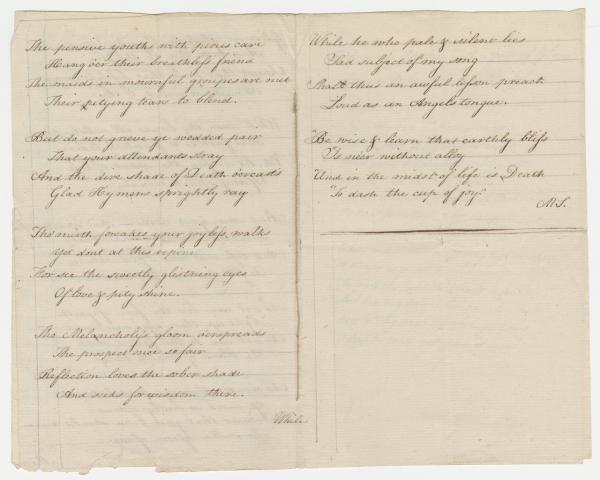 The pensive youths with pious care
Hang oe'r their breathless friend
The maids in mournful groupes are met
Their pitying tears to blend.
But do not grieve ye wedded pair
That your attendants stray
And the dire shade of Death o'ercasts
Glad Hymens sprightly ray
Tho' mirth forsakes your joyless walks
Yet dont at this repine
For see the sweetly glistning eyes
Of love & pity shine.
Tho Melancholys gloom o'erspreads
The prospect once so fair
Reflection loves the sober shade
And seeks for wisdom there.
While
While he who pale & silent lies
Sad subject of my song
Shall thus an awful lesson preach
Loud as an Angels tongue.
"Be wise & learn that earthly bliss
"Is ne'er without alloy
"And in the midst of life is Death
"To dash the cup of joy."
M.S.